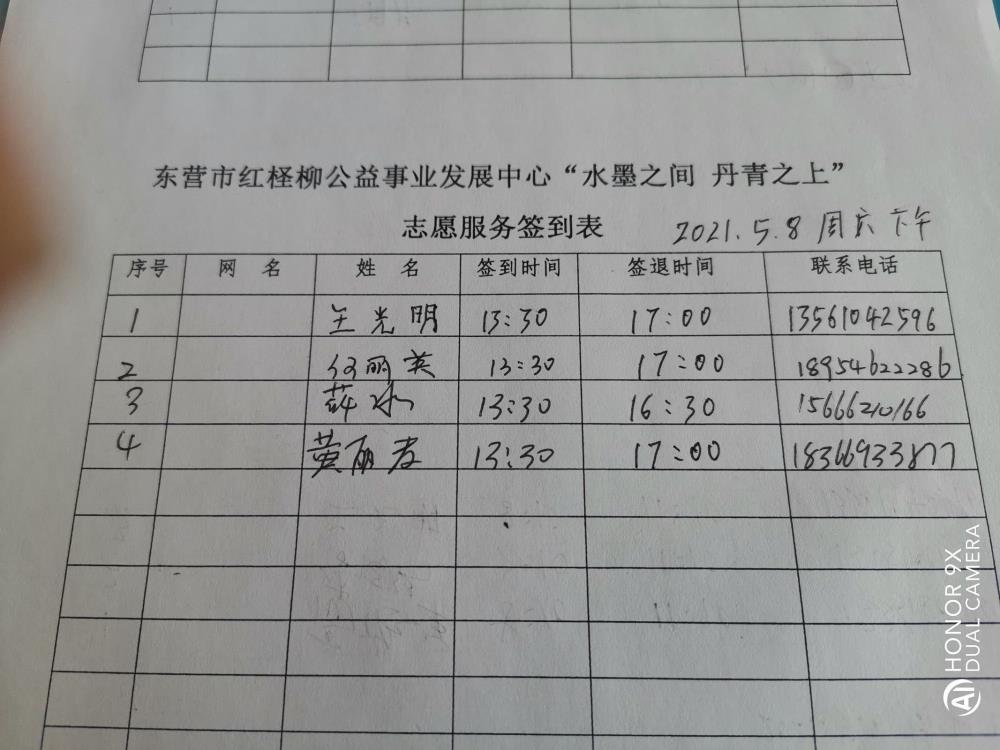 东营市红柽柳公益事业发展中心“水墨之间 丹青之上”
志愿服务签到表 2021.5.8 周六 下午
序号 网 名 姓 名 签到时间 签退时间 联系电话
1 王光明 13:30 17:00 13561042596
2 何丽英 13:30 17:00 18954622286
3 薛冰 13:30 16:30 15666210166
4 黄丽 13:30 17:00 18366933877
HONOR 9X
DUAL CAMERA
AI